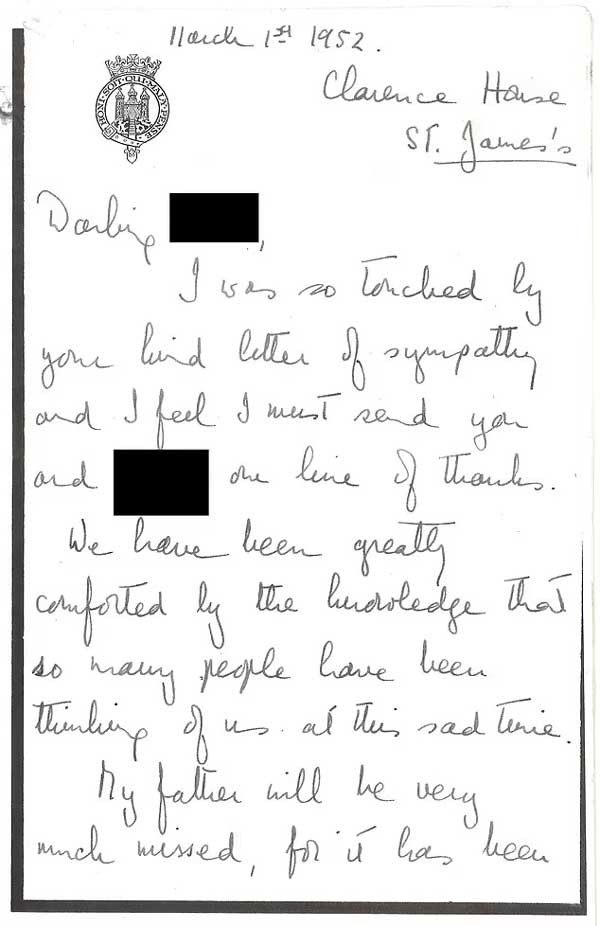 March 1st 1952.
HONI·SOIT·QUI·MAL·Y·PENSE
Clarence House
ST. James's
Darling ,
I was so touched by
your kind letter of sympathy
and I feel I must send you
and one line of thanks.
We have been greatly
comforted by the knowledge that
so many people have been
thinking of us at this sad time.
My father will be very
much missed, for it has been